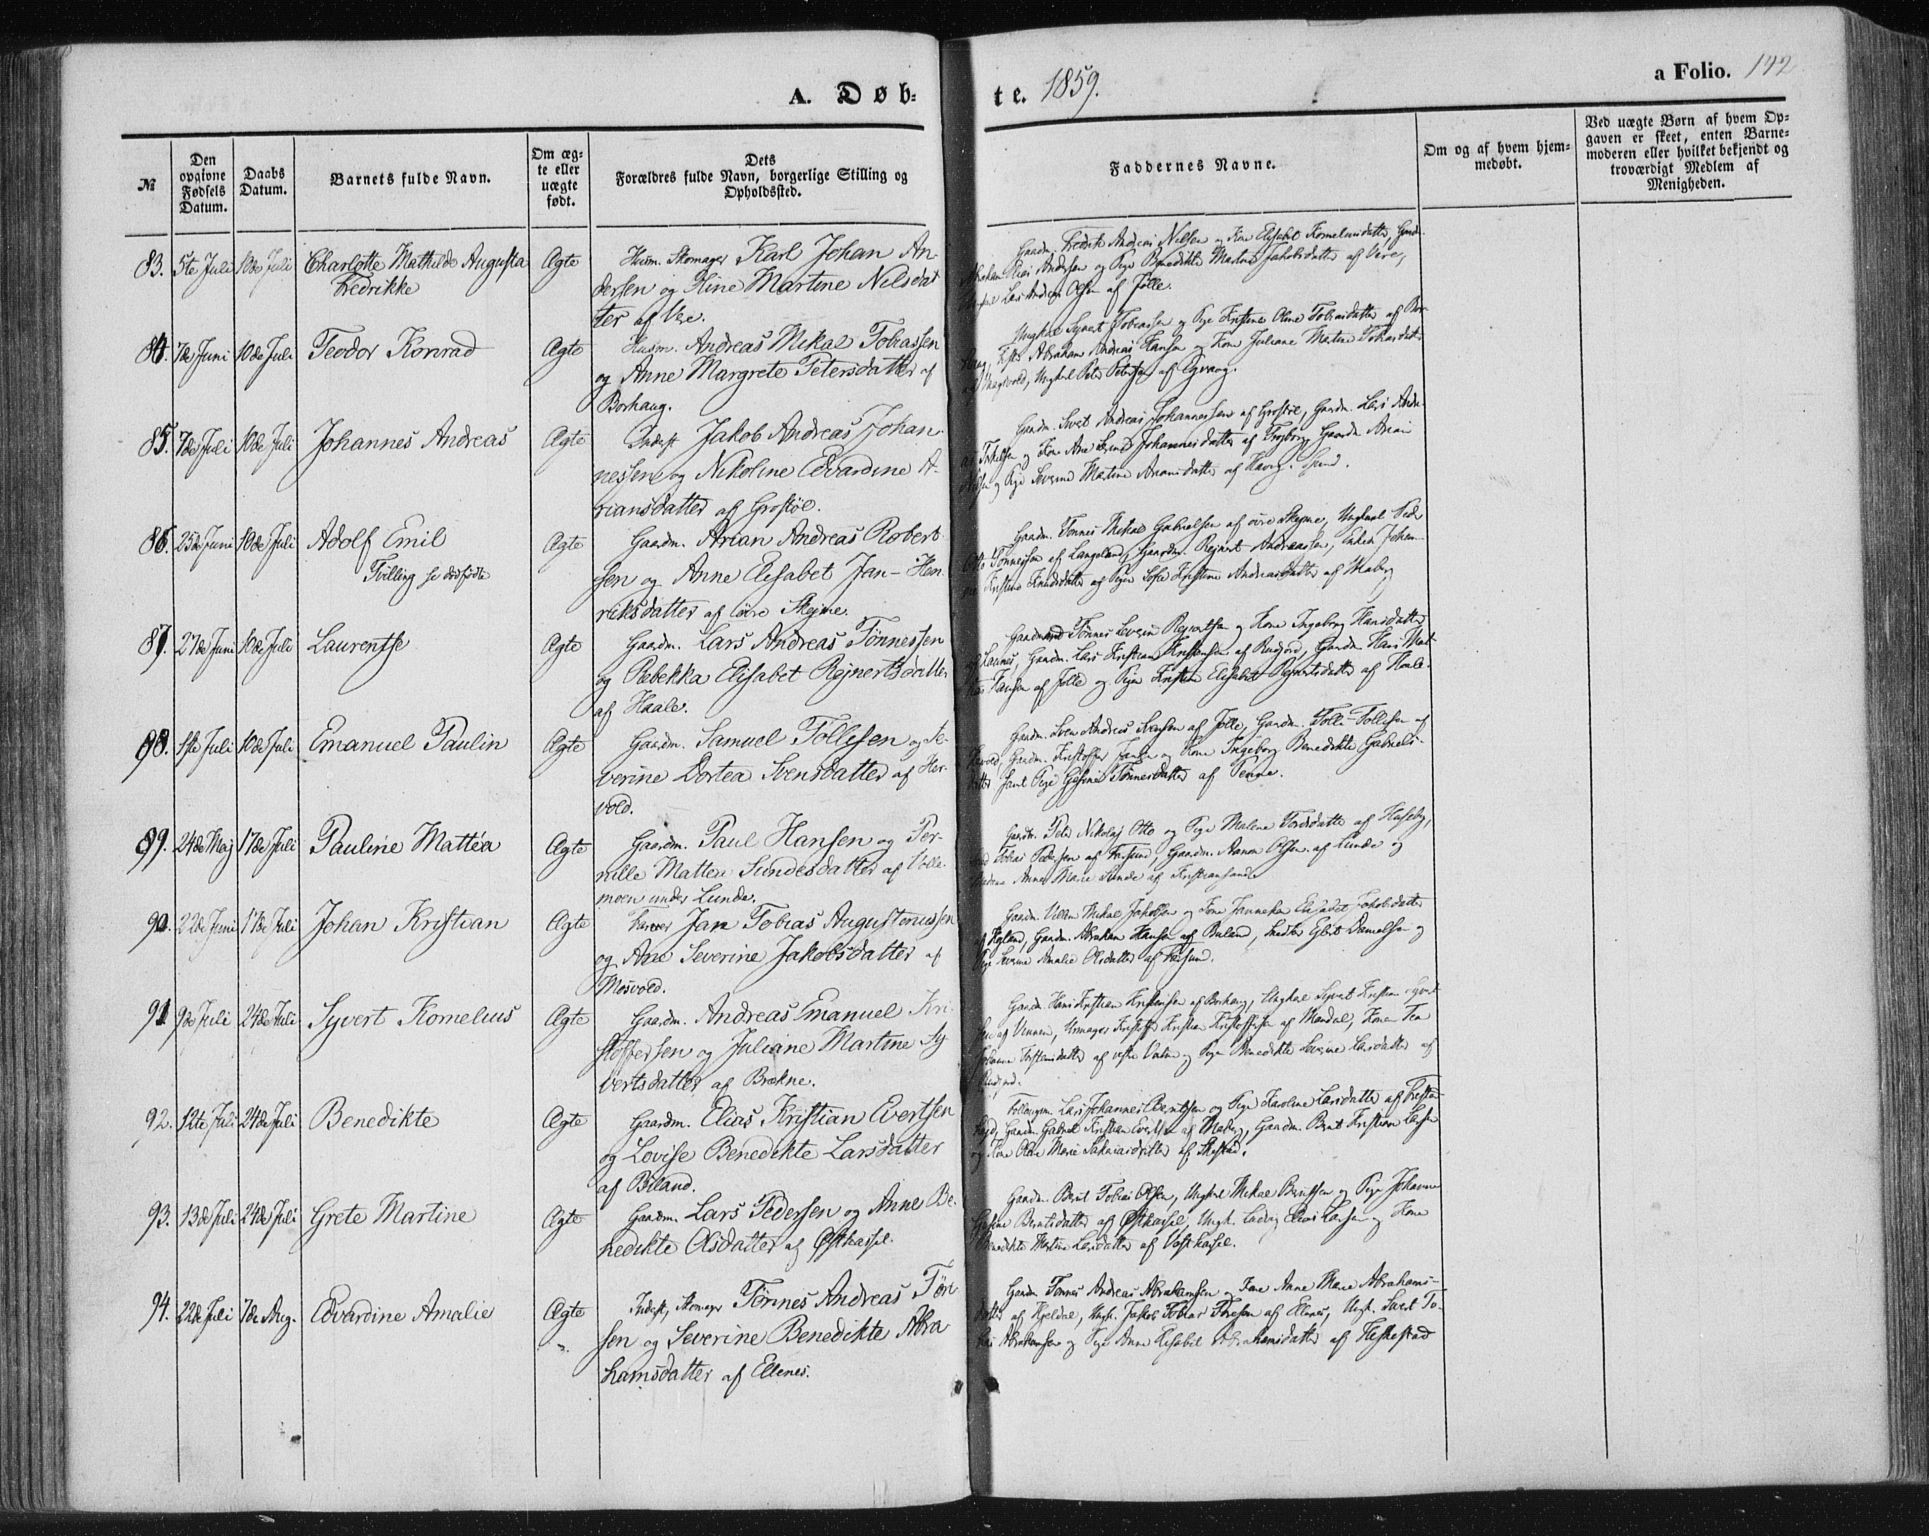 A. Døb-
te. 1859.
a Folio. 142
№
Den opgivne Fødsels Datum.
Daabs Datum.
Barnets fulde Navn.
Om ægte eller uægte født.
Dets Forældres fulde Navn, borgerlige Stilling og Opholdssted.
Faddernes Navne.
Om og af hvem hjemmedøbt.
Ved uægte Børn af hvem Opgaven er skeet, enten Barnemoderen eller hvilket bekjendt og troværdigt Medlem af Menigheden.
83. 5te Juli 10de Juli Charlotte Mathilde Augusta Ægte Husm. Skomager Karl Johan An-
Fredrikke
dersen og Stine Martine Nilsdat
ter af Vere.
Gaardm. Fredrik Andreas Nilsen og Kone Elisabet Korneliusdatter, Gaardm.
Abraham Elias Andersen og Pige Benedikte Martine Jakobsdatter af Vere,
Lars Andreas Olsen af Jølle.
84. 7de Juni 10de Juli Teodor Konrad Ægte Husm. Andreas Mikal Tobiassen
og Anne Margrete Petersdatter af
Borhaug.
Ungkal Syvert Tobiassen og Pige Kristine Oline Tobiasdatter af Bor-
haug, Abraham Andreas Hansen og Kone Juliane Martine Tobiasdatter
Ungkal Peter Petersen af Egvaag.
85. 7de Juli 10de Juli Johannes Andreas Ægte Inderst Jakob Andreas Johan-
nessen og Nikoline Edvardine A-
riansdatter af Grostøl.
Gaardm. Sivert Andreas Johannessen af Grostøl, Gaardm. Lars Andre-
as og Kone Ane Johannesdatter af Gaardm Arian
og Pige Severine Martine Ariansdatter af
86. 25de Juni 10de Juli Adolf Emil Ægte Gaardm. Arian Andreas Robert
Tvilling se dødfødte
sen og Anne Elisabet Jan-Hen
riksdatter af øvre Skeime.
Gaardm. Tønnes Mikal Gabrielsen af øvre Skeime, Ungkal Peder
Otto Tønnessen af Langeland, Gaardm. Rejnert Andreassen, Enken Johan-
ne Kristine Knudsdatter og Pige Sofie Kristine Andreasdatter af Maberg
87. 27de Juni 10de Juli Laurentse Ægte Gaardm. Lars Andreas Tønnessen
og Rebekka Elisabet Rejnertsdatter
af Haale.
Gaardmand Tønnes Severin Rejnertsen og Kone Ingeborg Hansdatter
af Launes, Gaardm. Lars Kristian Kristensen af Rudjord, Gaardm Hans Mat-
hias Hansen af Jølle og Pige Kristine Elisabet Rejnertsdatter af Haale.
88. 1ste Juli 10de Juli Emanuel Paulin Ægte Gaardm. Samuel Tollesen og Se-
verine Dortea Svensdatter af Her-
vold.
Gaardm. Sven Andreas Svensen af Jølle, Gaardm. Tolli Tollisen af
Hervold, Gaardm. Kristoffer og Kone Ingeborg Benedikte Gabriels-
datter samt Pige Gesine Tønnesdatter af Penne.
89. 24de Maj 17de Juli Pauline Mattéa Ægte Gaardm. Paul Hansen og Per-
nille Mattea Sundesdatter af Volle-
moen under Lunde.
Gaardm. Peder Nikolaj Otto og Pige Malene Tordsdatter af Huseby,
Tobias Pedersen af Farsund, Gaardm. Aanen Olsen af Lunde og
Madam Anne Marie Lunde af Kristiansand.
90. 22de Juni 17de Juli Johan Kristian Ægte Farver Jan Tobias Augustinussen
og Ane Severine Jakobsdatter af
Mosvold.
Gaardm. Villem Mikal Jakobsen og Kone Janneken Elisabet Jakobsdatter
af Rgland, Gaardm. Abraham Hansen af Buland, Inderst Gbrit Danielsen og
Pige Severine Amalie Olsdatter af Farsund.
91 9de Juli 24de Juli Syvert Kornelius Ægte Gaardm. Andreas Emanuel Kri-
stoffersen og Juliane Martine Sy
vertsdatter af Brekne.
Gaardm Hans Kristian Kristensen af Borhaug, Ungkal Syvert Kristian Syvert-
sen af Vinnem, Urmager Kristoffer Kristian Kristoffersen af Mandal, Kone Tea
Johanne Kristensdatter af vestre Vatne og Pige Benedikte Severine Larsdatter af
Rudjord.
92. 12te Juli 24de Juli Benedikte Ægte Gaardm. Elias Kristian Evertsen
og Lovise Benedikte Larsdatter
af Biland.
Lars Johannes Berntsen og Pige Karoline Larsdatter af
Gaardm. Gabriel Kristian Evertsen af Maberg, Gaardm. Bernt Kristian Larsen
og Kone Oline Marie Sakariasdatter af Skeistad.
93. 13de Juli 24de Juli Grete Martine Ægte Gaardm. Lars Pedersen og Anne Be-
nedikte Olsdatter af Østhassel.
Gaardm. Bernt Tobias Olsen, Ungkal Mikal Berntsen og Pige Johanne
Gesine Berntsdatter af Østhassel, Ungk. Ludvig Elias Larsen og Kone
Benedikte Martine Larsdatter af Vesthassel.
94. 22de Juli 7de Aug. Edvardine Amalie Ægte Inderst, Skomager Tønnes Andreas Tøn
sen og Severine Benedikte Abra
hamsdatter af Ellenes.
Gaardm Tønnes Andreas Abrahamsen og Kone Anne Marie Abrahams-
datter af Hjeldal, Ungk. Jakob Tobias Tønnesen af Elenes, Ungk. Sivert To-
bias Abrahamsen og Pige Anne Elisabet Abrahamsdatter af Heskestad